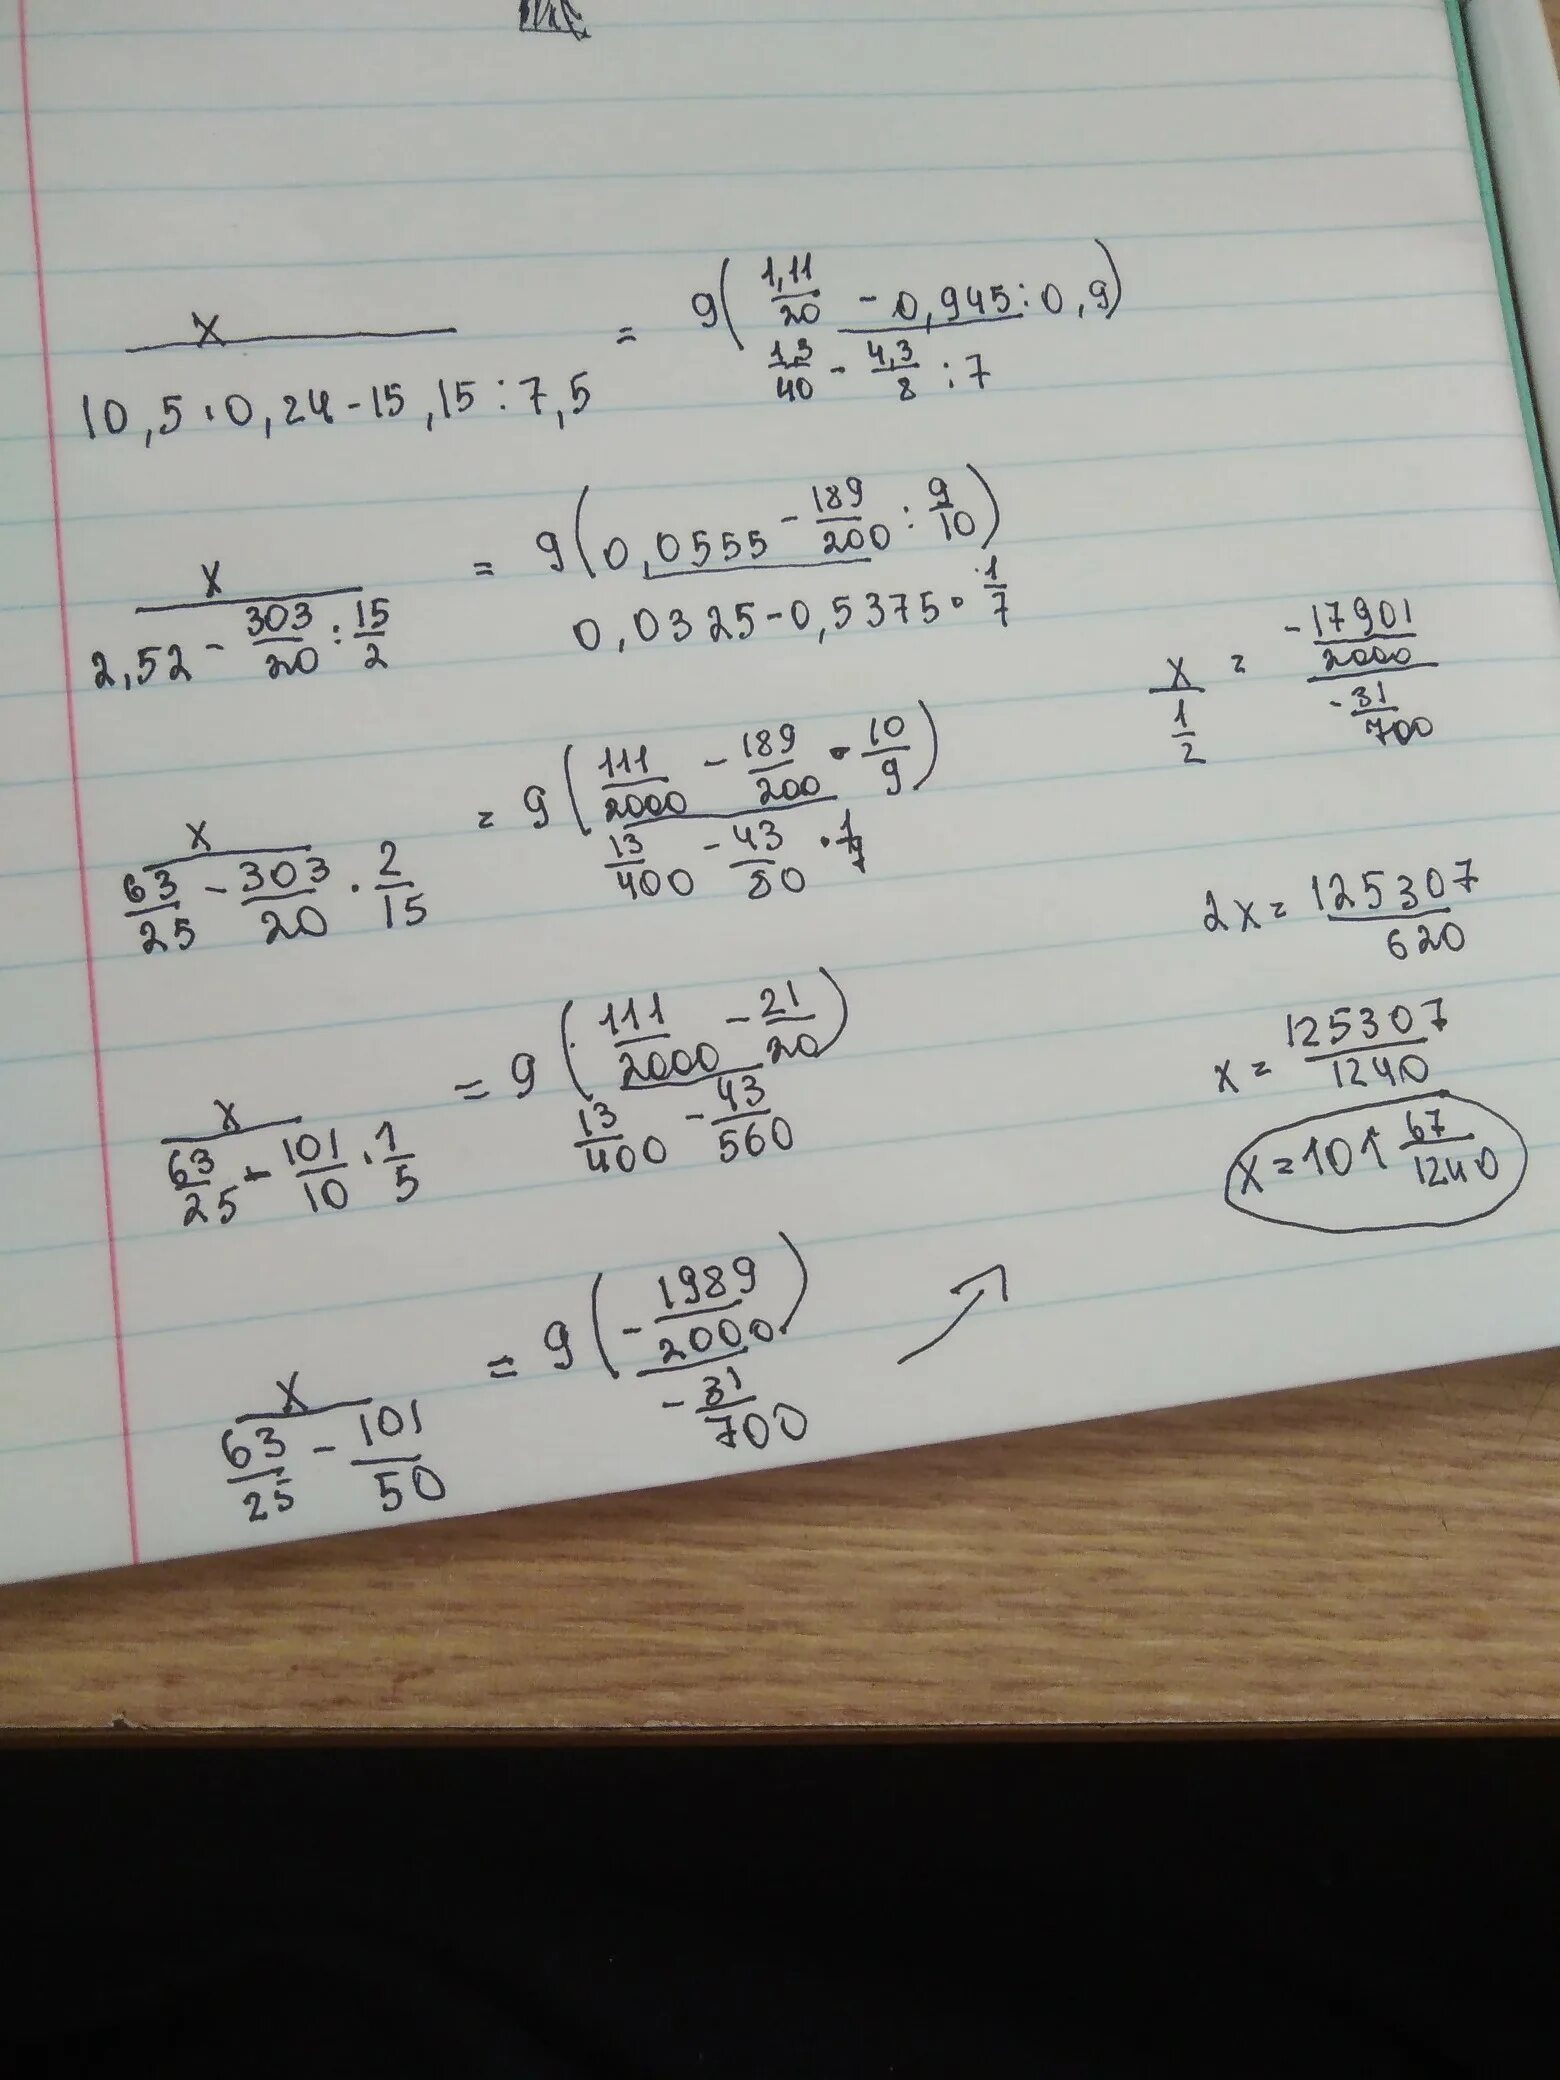 x / (10,5·0,24-15,15:7,5) = 9(1,11/20 - 0,945:0,9) / (1,3/40 - 4,3/8 :7)
x / (2,52 - 303/20 : 15/2) = 9(0,0555 - 189/200 : 9/10) / (0,0325-0,5375·1/7)
x / (63/25 - 303/20 · 2/15) = 9(111/2000 - 189/200 · 10/9) / (13/400 - 43/80 · 1/7)
x / (63/25 - 101/10 · 1/5) = 9(111/2000 - 21/20) / (13/400 - 43/560)
x / (63/25 - 101/50) = 9(-1989/2000) / (-31/700)
x / (1/2) = (-17901/2000) / (-31/700)
2x = 125307/620
x = 125307/1240
x = 101 67/1240